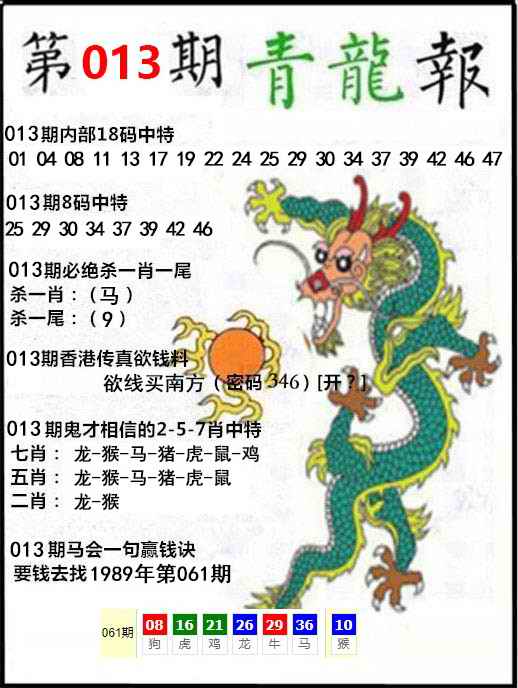 第013期青龍報
013期内部18码中特
01 04 08 11 13 17 19 22 24 25 29 30 34 37 39 42 46 47
013期8码中特
25 29 30 34 37 39 42 46
013期必绝杀一肖一尾
杀一肖：（马）
杀一尾：（9）
013期香港传真欲钱料
欲线买南方（密码346）[开？]
013期鬼才相信的2-5-7肖中特
七肖： 龙-猴-马-猪-虎-鼠-鸡
五肖： 龙-猴-马-猪-虎-鼠
二肖： 龙-猴
013期马会一句赢钱诀
要钱去找1989年第061期
061期 08 16 21 26 29 36 10
狗 虎 鸡 龙 牛 马 猴